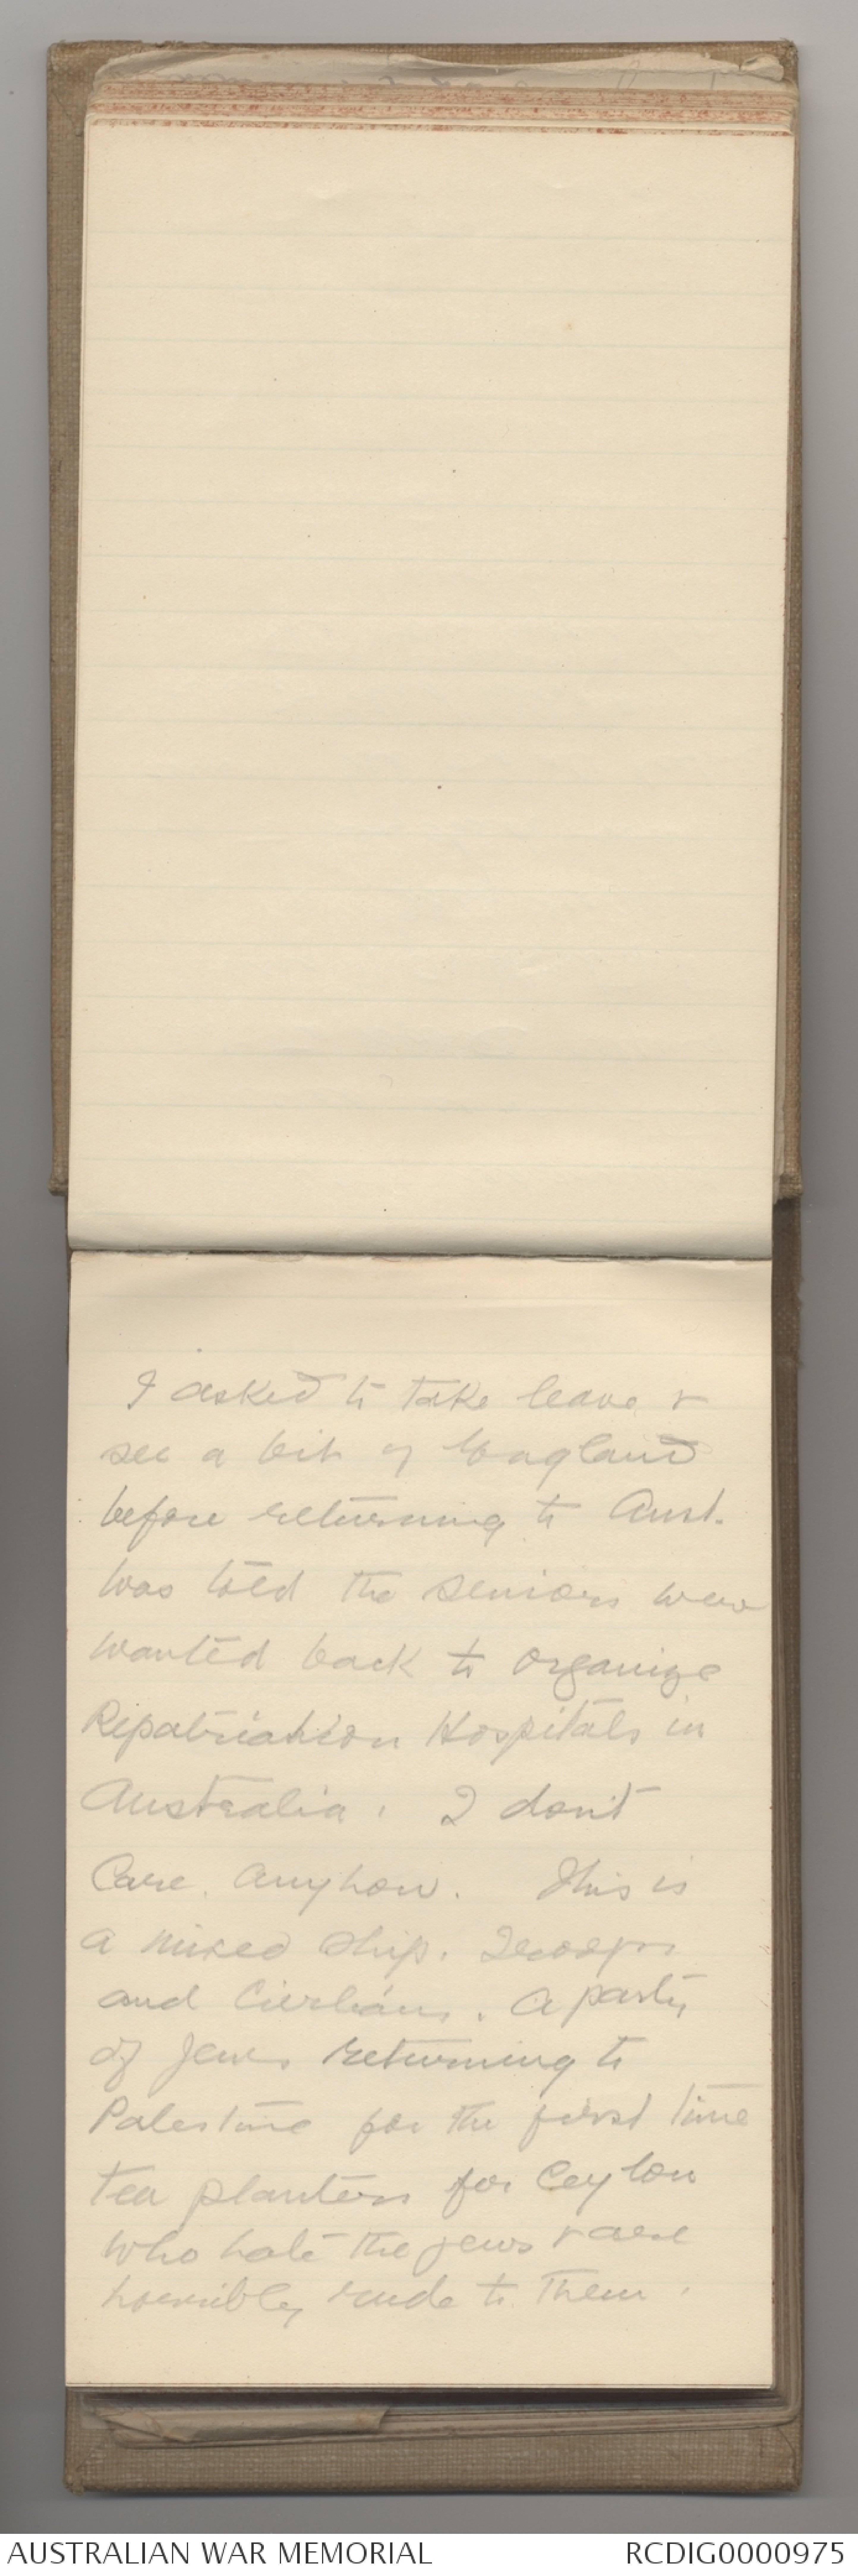 I asked to take leave &
see a bit of England
before returning to Aust.
Was told the seniors were
wanted back to organize
Repatriation Hospitals in
Australia. I don't
Care. anyhow. This is
a mixed ship. Troops
and Civilians. A party
of Jews returning to
Palestine for the first time
tea planters for Ceylon
who hate the jews & are
horribly rude to them.
AUSTRALIAN WAR MEMORIAL
RCDIG0000975